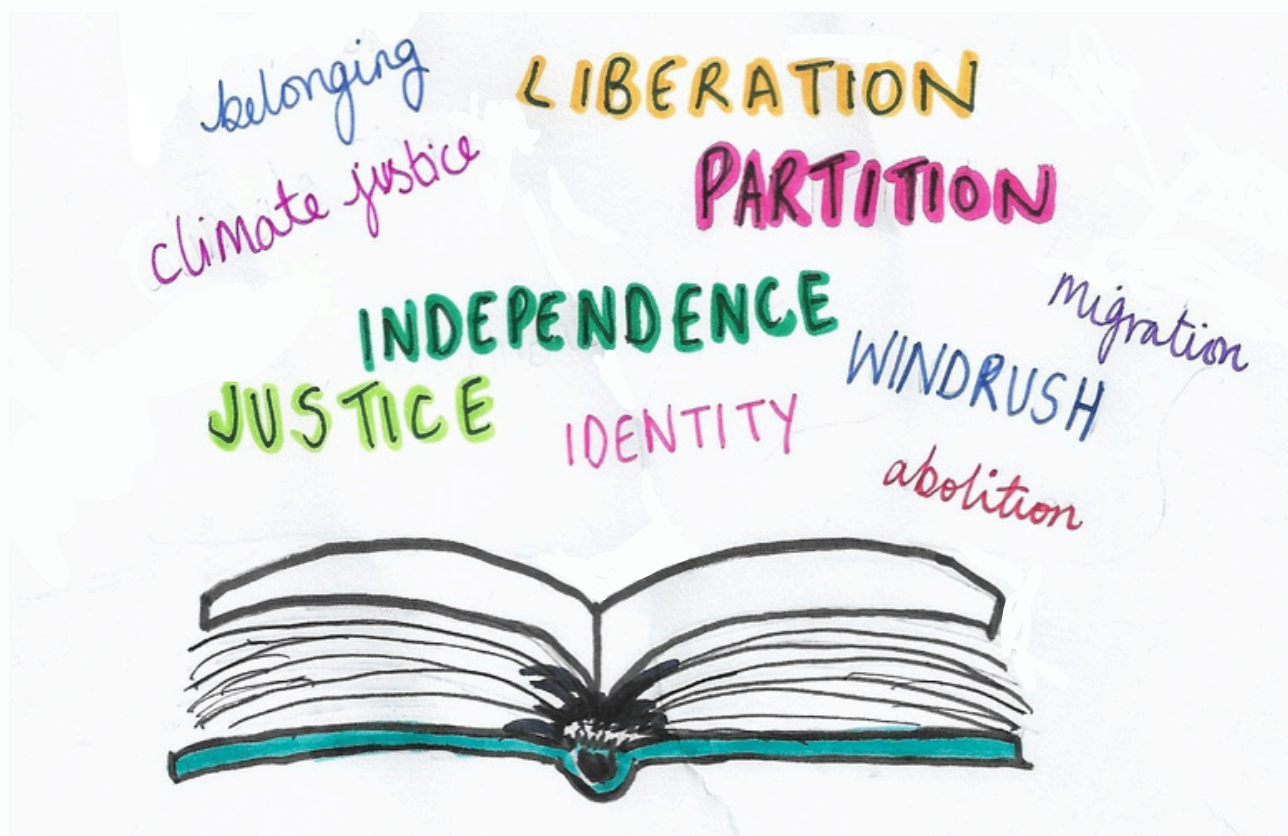 belonging
LIBERATION
climate justice
PARTITION
INDEPENDENCE
migration
WINDRUSH
JUSTICE
IDENTITY
abolition